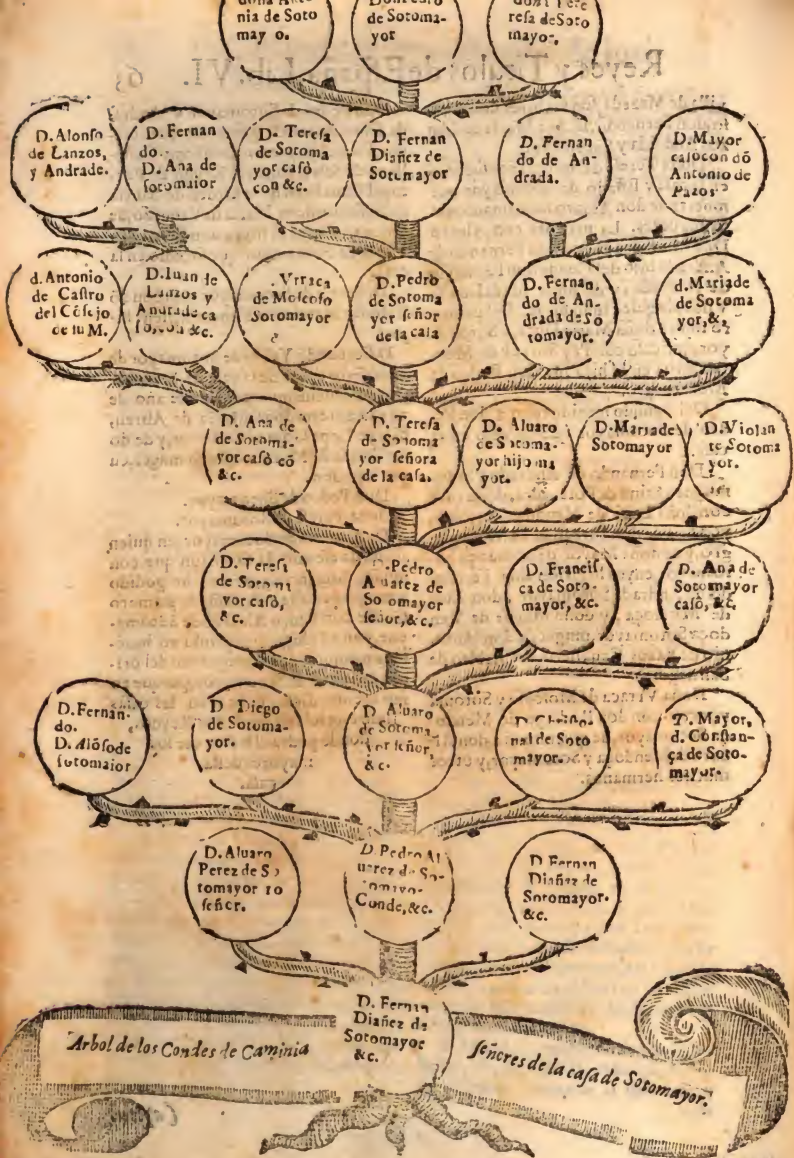 nia de Soto
may o.
de Sotoma-
yor
resa de Soto
mayor,
D. Alonso
de Lanzos,
y Andrade.
D. Fernan
do.
D. Ana de
sotomaior
D. Teresa
de Sotoma
yor casò
con &c.
D. Fernan
Diañez de
Sotomayor
D. Fernan
do de An-
drada.
D. Mayor
casò con dõ
Antonio de
Pazos
d. Antonio
de Castro
del Cõsejo
de su M.
D. Iuan de
Lanzos y
Andrade ca
sò, con &c.
. Vrraca
de Moscoso
Sotomayor
D. Pedro
de Sotoma
yor señor
de la casa
D. Fernan.
do de An-
drada de So
tomayor.
d. Maria de
de Sotoma
yor, &,
D. Ana de
de Sotoma-
yor casò cõ
&c.
D. Teresa
de Sotoma
yor señora
de la casa.
D. Aluaro
de Sotoma-
yor hijo ma
yor.
D. Maria de
Sotomayor
D. Violan
te Sotoma
yor.
D. Teresa
de Sotom
yor casò,
&c.
.Pedro
A uarez de
So omayor
señor, &c.
D. Francis
ca de Soto-
mayor, &c.
D. Ana de
Sotomayor
casò, &c,
D. Fernan-
do.
D. Alõso de
sotomaior
D Diego
de Sotoma-
yor.
D Aluaro
de Sotoma.
yor señor,
&c.
nal de Soto
mayor.
D. Mayor,
d. Constan-
ça de Soto-
mayor.
D. Aluaro
Perez de So
tomayor 10
señor.
D. Pedro Al
uarez de So-
tomayo-
Conde, &c.
D Fernan
Diañez de
Sotomayor.
&c.
D. Fernan
Diañez de
Sotomayor
&c.
Arbol de los Condes de Caminia
señores de la casa de Sotomayor.